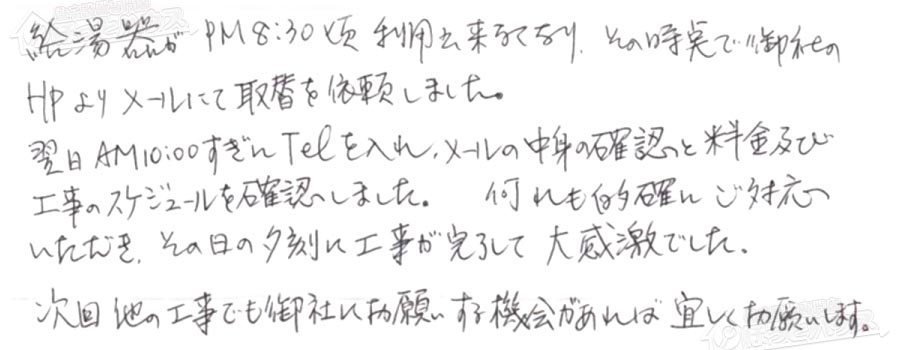 給湯器がPM8:30頃 利用出来なくなり、その時点で御社の
HPよりメールにて取替を依頼しました。
翌日AM10:00すぎにTelを入れ、メールの中身の確認と料金及び
工事のスケジュールを確認しました。 何れも的確にご対応
いただき、その日の夕刻に工事が完了して大感激でした。
次回他の工事でも御社にお願いする機会があれば宜しくお願いします。